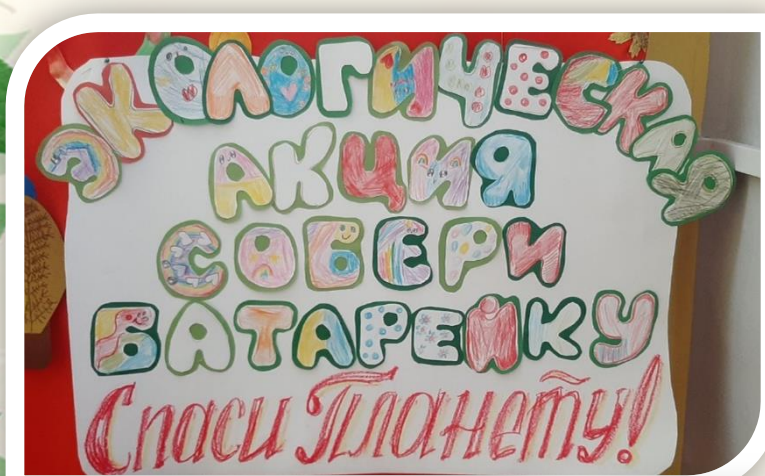 ЭКОЛОГИЧЕСКАЯ
АКЦИЯ
СОБЕРИ
БАТАРЕЙКУ
Спаси Планету!